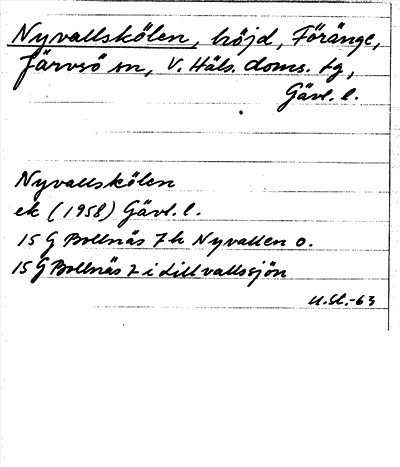 Nyvallskölen, höjd, Föränge,
Järvsö sn, V. Häls. doms. tg,
Gävl. l.
Nyvallskölen
ek (1958) Gävl. l.
15 G Bollnäs 7 h Nyvallen o.
15 G Bollnäs 7 i Lillvallsjön
U.St.-63